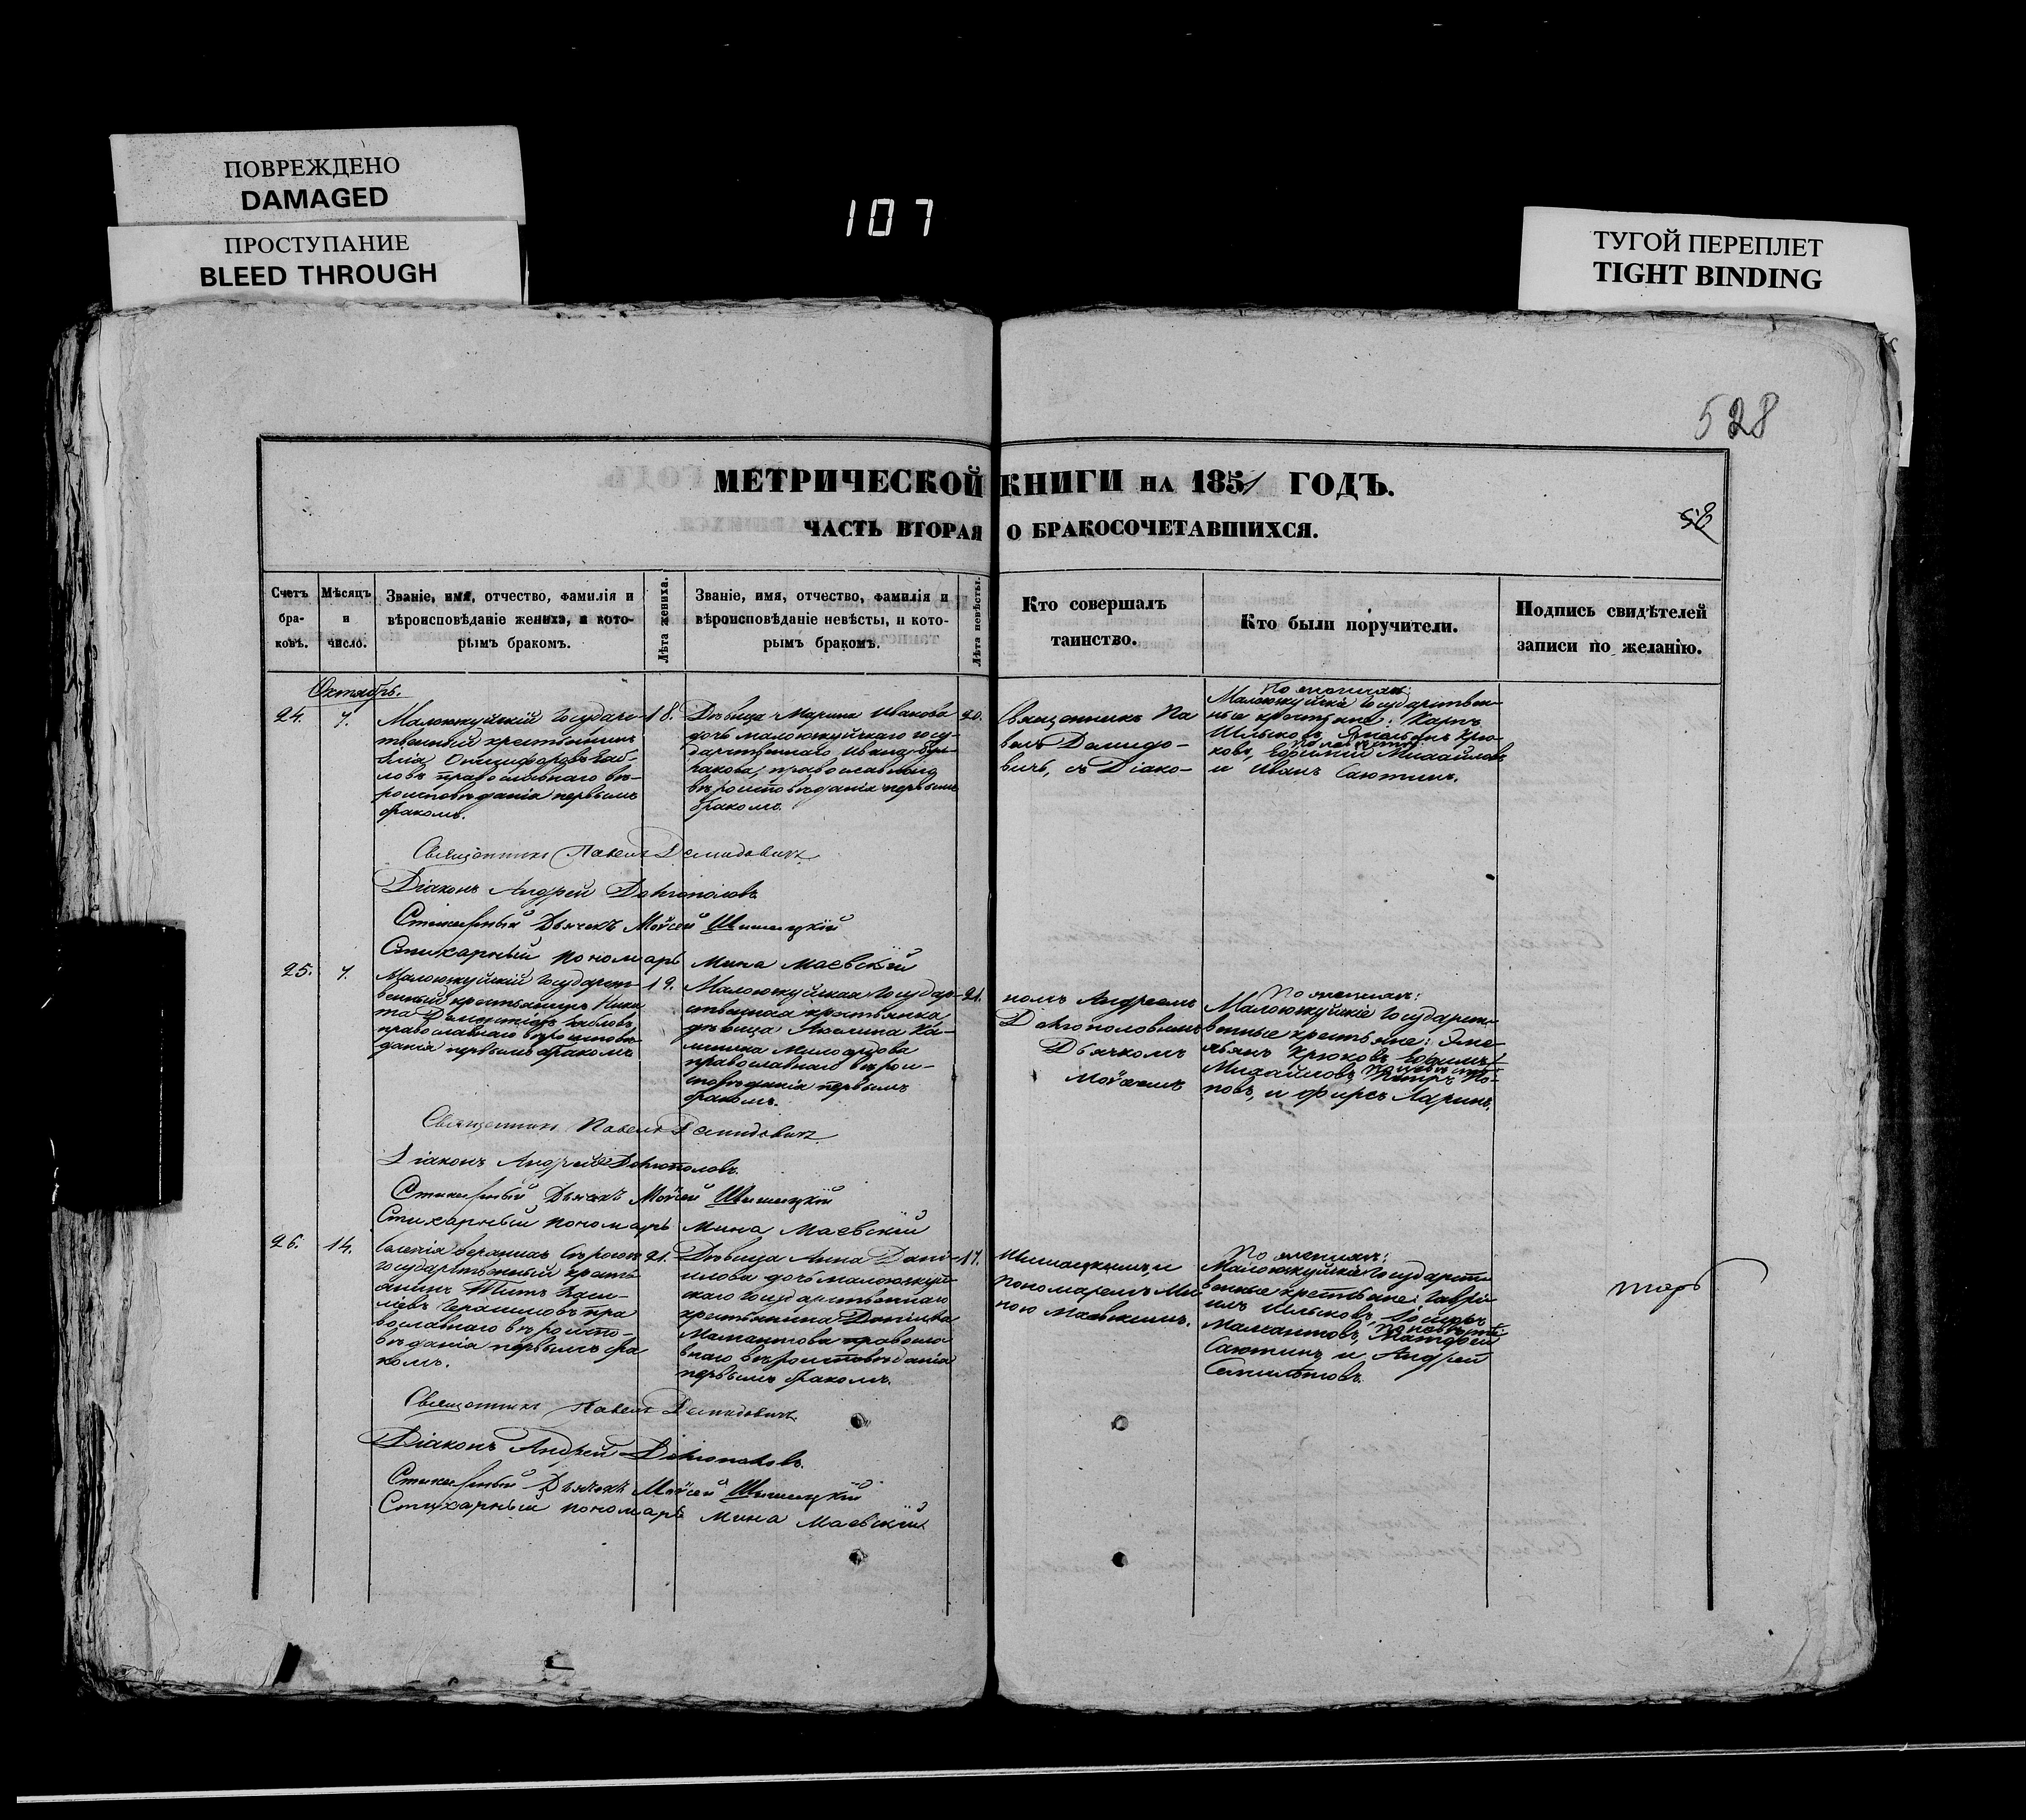 ПОВРЕЖДЕНО
DAMAGED
ПРОСТУПАНИЕ
BLEED THROUGH
107
ТУГОЙ ПЕРЕПЛЕТ
TIGHT BINDING
528
МЕТРИЧЕСКОЙ КНИГИ НА 1851 ГОДЪ.
ЧАСТЬ ВТОРАЯ О БРАКОСОЧЕТАВШИХСЯ.
Счетъ бра-ковъ.
Мѣсяцъ и число.
Званіе, имя, отчество, фамилія и
вѣроисповѣданіе жениха, и кото-
рымъ бракомъ.
Лѣта жениха.
Званіе, имя, отчество, фамилія и
вѣроисповѣданіе невѣсты, и кото-
рымъ бракомъ.
Лѣта невѣсты.
Кто совершалъ
таинство.
Кто были поручители.
Подпись свидѣтелей
записи по желанію.
Октябрь.
24.
7.
Малоюжуйскій Государс-
твенный крестьянинъ
Онисифоровъ
ловъ православнаго вѣ-
роисповѣданія первымъ
бракомъ.
18.
Дѣвица Марина Иванова
дочь малоюжуйскаго госу-
дарственнаго Ивана Бул-
гакова, православнаго
вѣроисповѣданія первымъ
бракомъ.
20.
Священникъ Па
велъ Демидо-
вичь, съ Діако-
По женихѣ:
Малоюжуйскіе Государствен-
ные крестьяне: Карпъ
Шлыковъ, Емельянъ Крю-
ковъ, по невѣстѣ: Ефимій Михайловъ
и Иванъ Саютинъ.
Священникъ Павелъ Демидовичъ
Діаконъ Андрей Долгополовъ
Стихарный Дьячекъ Мойсей Шишацкій
Стихарный пономарь Мина Маевскій
25.
7.
Малоюжуйскій Государст-
венный крестьянинъ Ники
та
православнаго вѣроисповѣ-
данія первымъ бракомъ
19.
Малоюжуйская Государ-
ственная крестьянка
дѣвица Акелина Ка-
православнаго вѣрои-
сповѣданія первымъ
бракомъ.
21.
номъ Андреемъ
Долгополовымъ
Дьячкомъ
Мойсеемъ
По женихѣ:
Малоюжуйскіе Государст-
венные крестьяне: Эме-
льянъ Крюковъ, Ефимъ
Михайловъ, по невѣстѣ: Петръ По-
повъ, и Фирсъ Ларинъ.
Священникъ Павелъ Демидовичъ
Діаконъ Андрей Долгополовъ.
Стихарный Дьячекъ Мойсей Шишацкій
Стихарный пономарь Мина Маевскій
26.
14.
Государственный кресть
янинъ Титъ Васи-
льевъ Герасимовъ пра
вославнаго вѣроиспо-
вѣданія первымъ бра
комъ.
21.
Дѣвица Анна Дани-
лова дочь малоюжуй-
скаго Государственнаго
крестьянина Даніила
Мамантова правосла
внаго вѣроисповѣданія
первымъ бракомъ.
17.
Шишацкимъ, и
пономаремъ Ми
ною Маевскимъ.
По женихѣ:
Малоюжуйскіе Государст-
венные крестьяне: Гаврі-
илъ Шлыковъ,
Мамантовъ, по невѣстѣ: Матвей
Саютинъ и Андрей
Священникъ Павелъ Демидовичъ.
Діаконъ Андрей Долгополовъ.
Стихарный Дьячекъ Мойсей Шишацкій
Стихарный пономарь Мина Маевскій